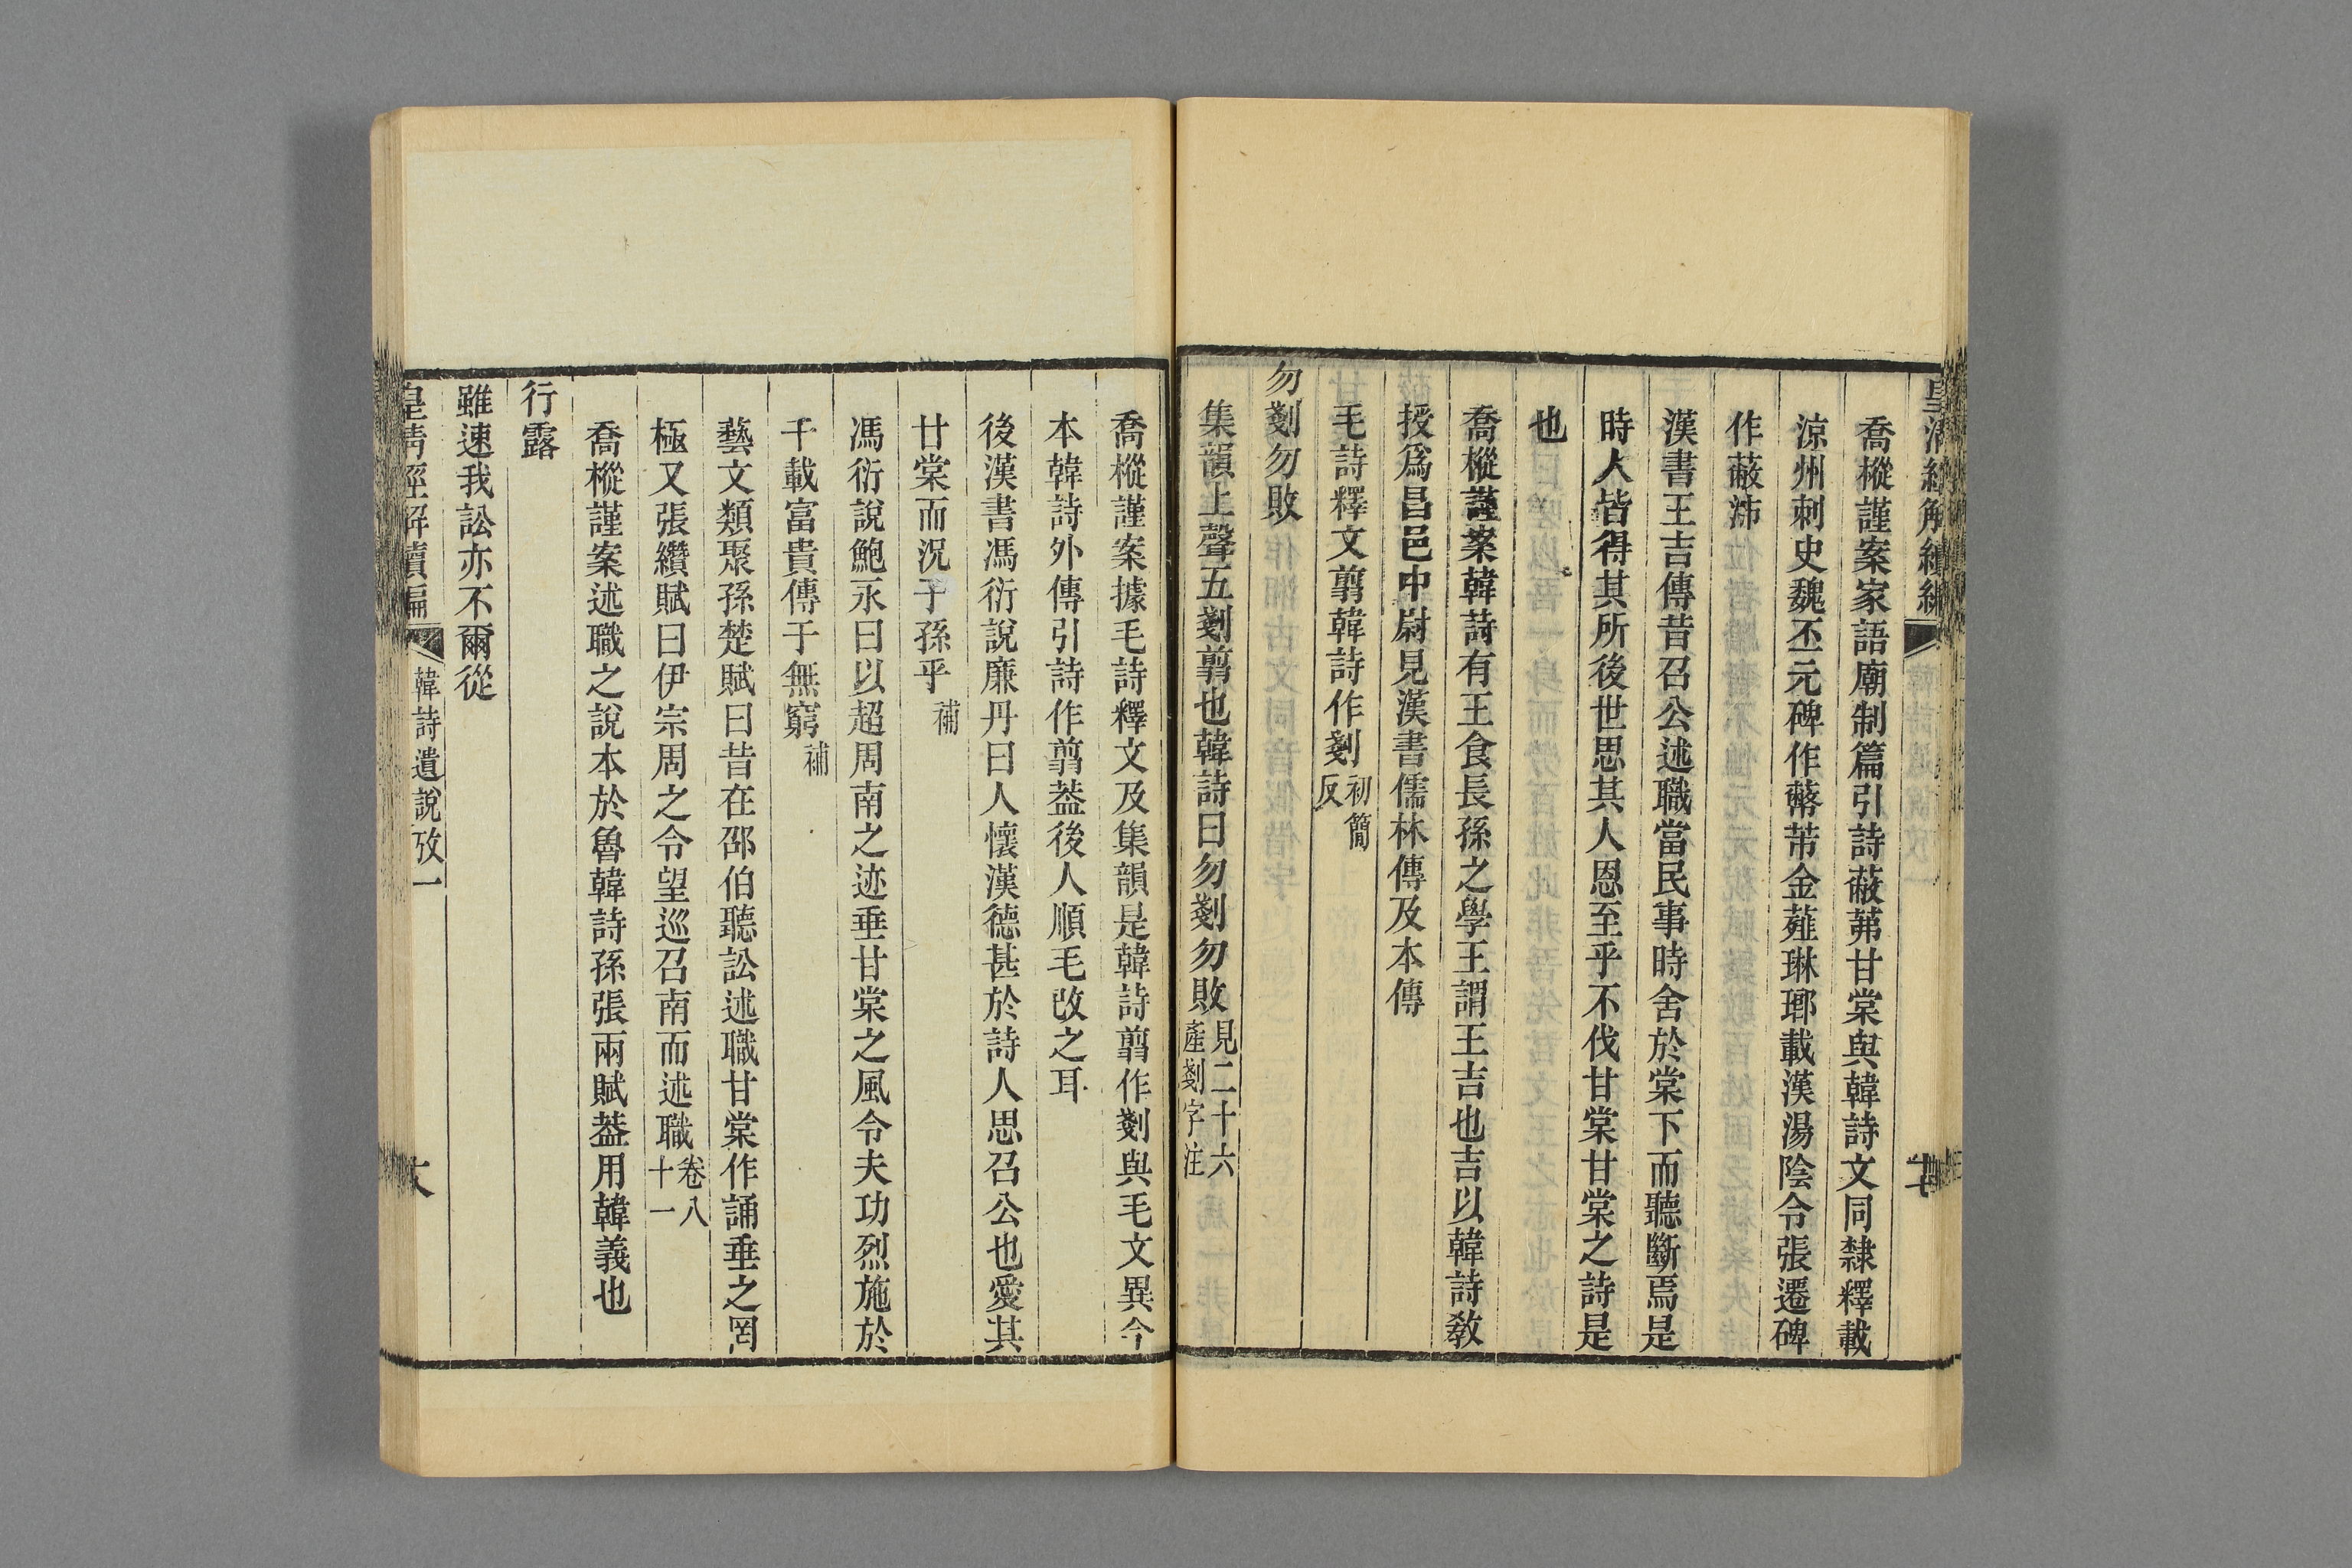 喬樅謹案家語廟制篇引詩蔽茀甘棠與韓詩文同隸釋載
涼州刺史魏丕元碑作蔽芾金薤琳瑯載漢湯陰令張遷碑
作蔽沛
漢書王吉傳昔召公述職當民事時舍於棠下而聽斷焉是
時人皆得其所後世思其人恩至乎不伐甘棠甘棠之詩是
也
喬樅謹案韓詩有王食長孫之學王謂王吉也吉以韓詩敎
授爲昌邑中尉見漢書儒林傳及本傳
毛詩釋文翦韓詩作剗初簡反
勿剗勿敗
集韻上聲五剗翦也韓詩曰勿剗勿敗見二十六產剗字注
喬樅謹案據毛詩釋文及集韻是韓詩翦作剗與毛文異今
本韓詩外傳引詩作翦葢後人順毛改之耳
後漢書馮衍說廉丹曰人懷漢德甚於詩人思召公也愛其
甘棠而況子孫乎補
馮衍說鮑永曰以超周南之迹垂甘棠之風令夫功烈施於
千載富貴傳于無窮補
藝文類聚孫楚賦曰昔在邵伯聽訟述職甘棠作誦垂之罔
極又張纘賦曰伊宗周之令望巡召南而述職卷八十一
喬樅謹案述職之說本於魯韓詩孫張兩賦葢用韓義也
行露
雖速我訟亦不爾從
皇淸經解續編
韓詩遺說攷一